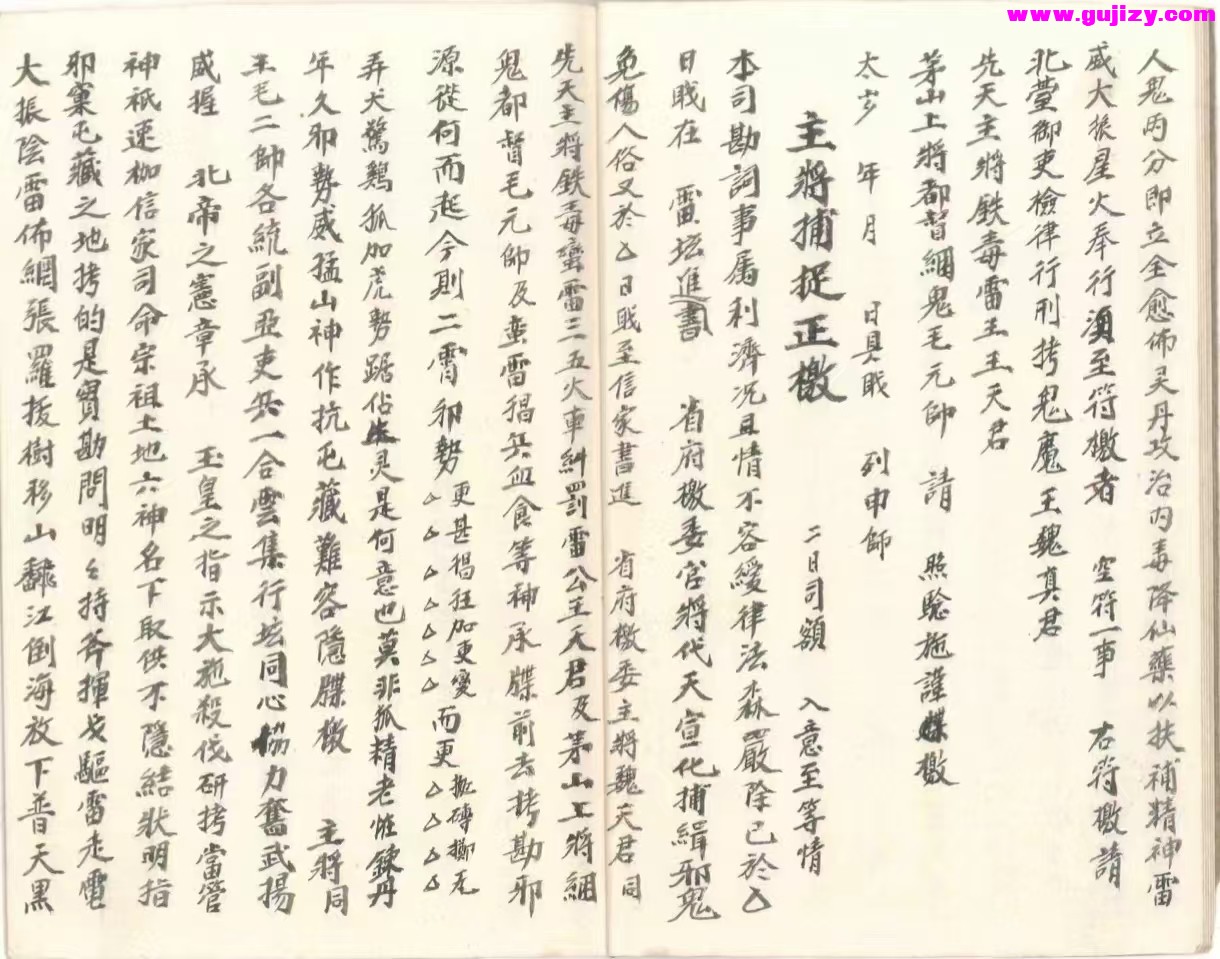 www.gujizy.com
人鬼丙分即立全愈佈灵丹攻治内毒降仙藥以扶補精神雷
威大振星火奉行須至符檄者 空符一事 右符檄請
北臺御吏檢律行刑拷鬼魔王魏真君
先天主將鉄毒雷王王天君
茅山上將都督綑鬼毛元帥 請 照驗施謹牒檄
太歲 年月 日具戝 列申師
主將捕捉正檄 二日司額 入意至等情
本司勘詞事属利濟况且情不容緩律法森嚴除已於△
日戝在 雷坛進書 省府檄委宫將代天宣化捕緝邪鬼
免傷人俗又於△日戝至信家書進 省府檄委主將魏天君同
先天主將鉄毒蛮雷三五火車糾罰雷公王天君及茅山上將綑
鬼都督毛元帥及蛮雷猖兵血食等神承牒前去拷勘邪
源從何而起今則二霄邪勢△△△△△△△更甚猖狂加更變而更△△△△掀磚擲瓦
弄犬驚鷄狐加虎勢踞佔生灵是何意也莫非狐精老恠鍊丹
年久邪勢威猛山神作抗屯藏難容隱牒檄 主將同
王毛二帥各統副亞吏兵一合雲集行坛同心協力奮武揚
威握 北帝之憲章承 玉皇之指示大施殺伐研拷當管
神祇速枷信家司命宗祖土地六神名下取供不隱結狀明指
邪窠屯藏之地拷的是實勘問明々持斧揮戈驅雷走電
大振陰雷佈網張羅拔樹移山翻江倒海放下普天黑